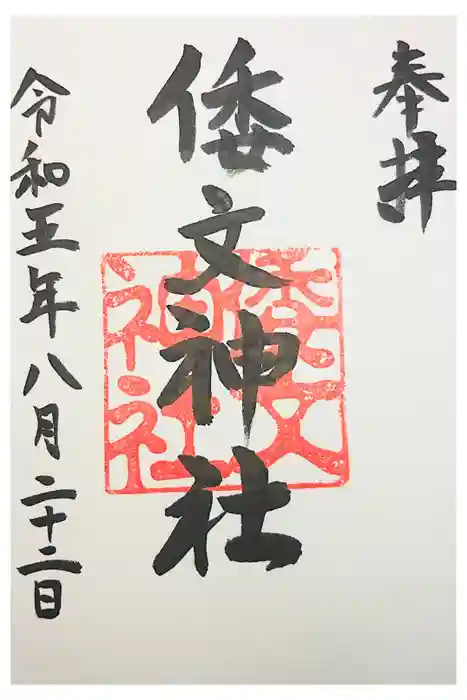 奉拝
倭文神社
倭文神社
令和五年八月二十二日